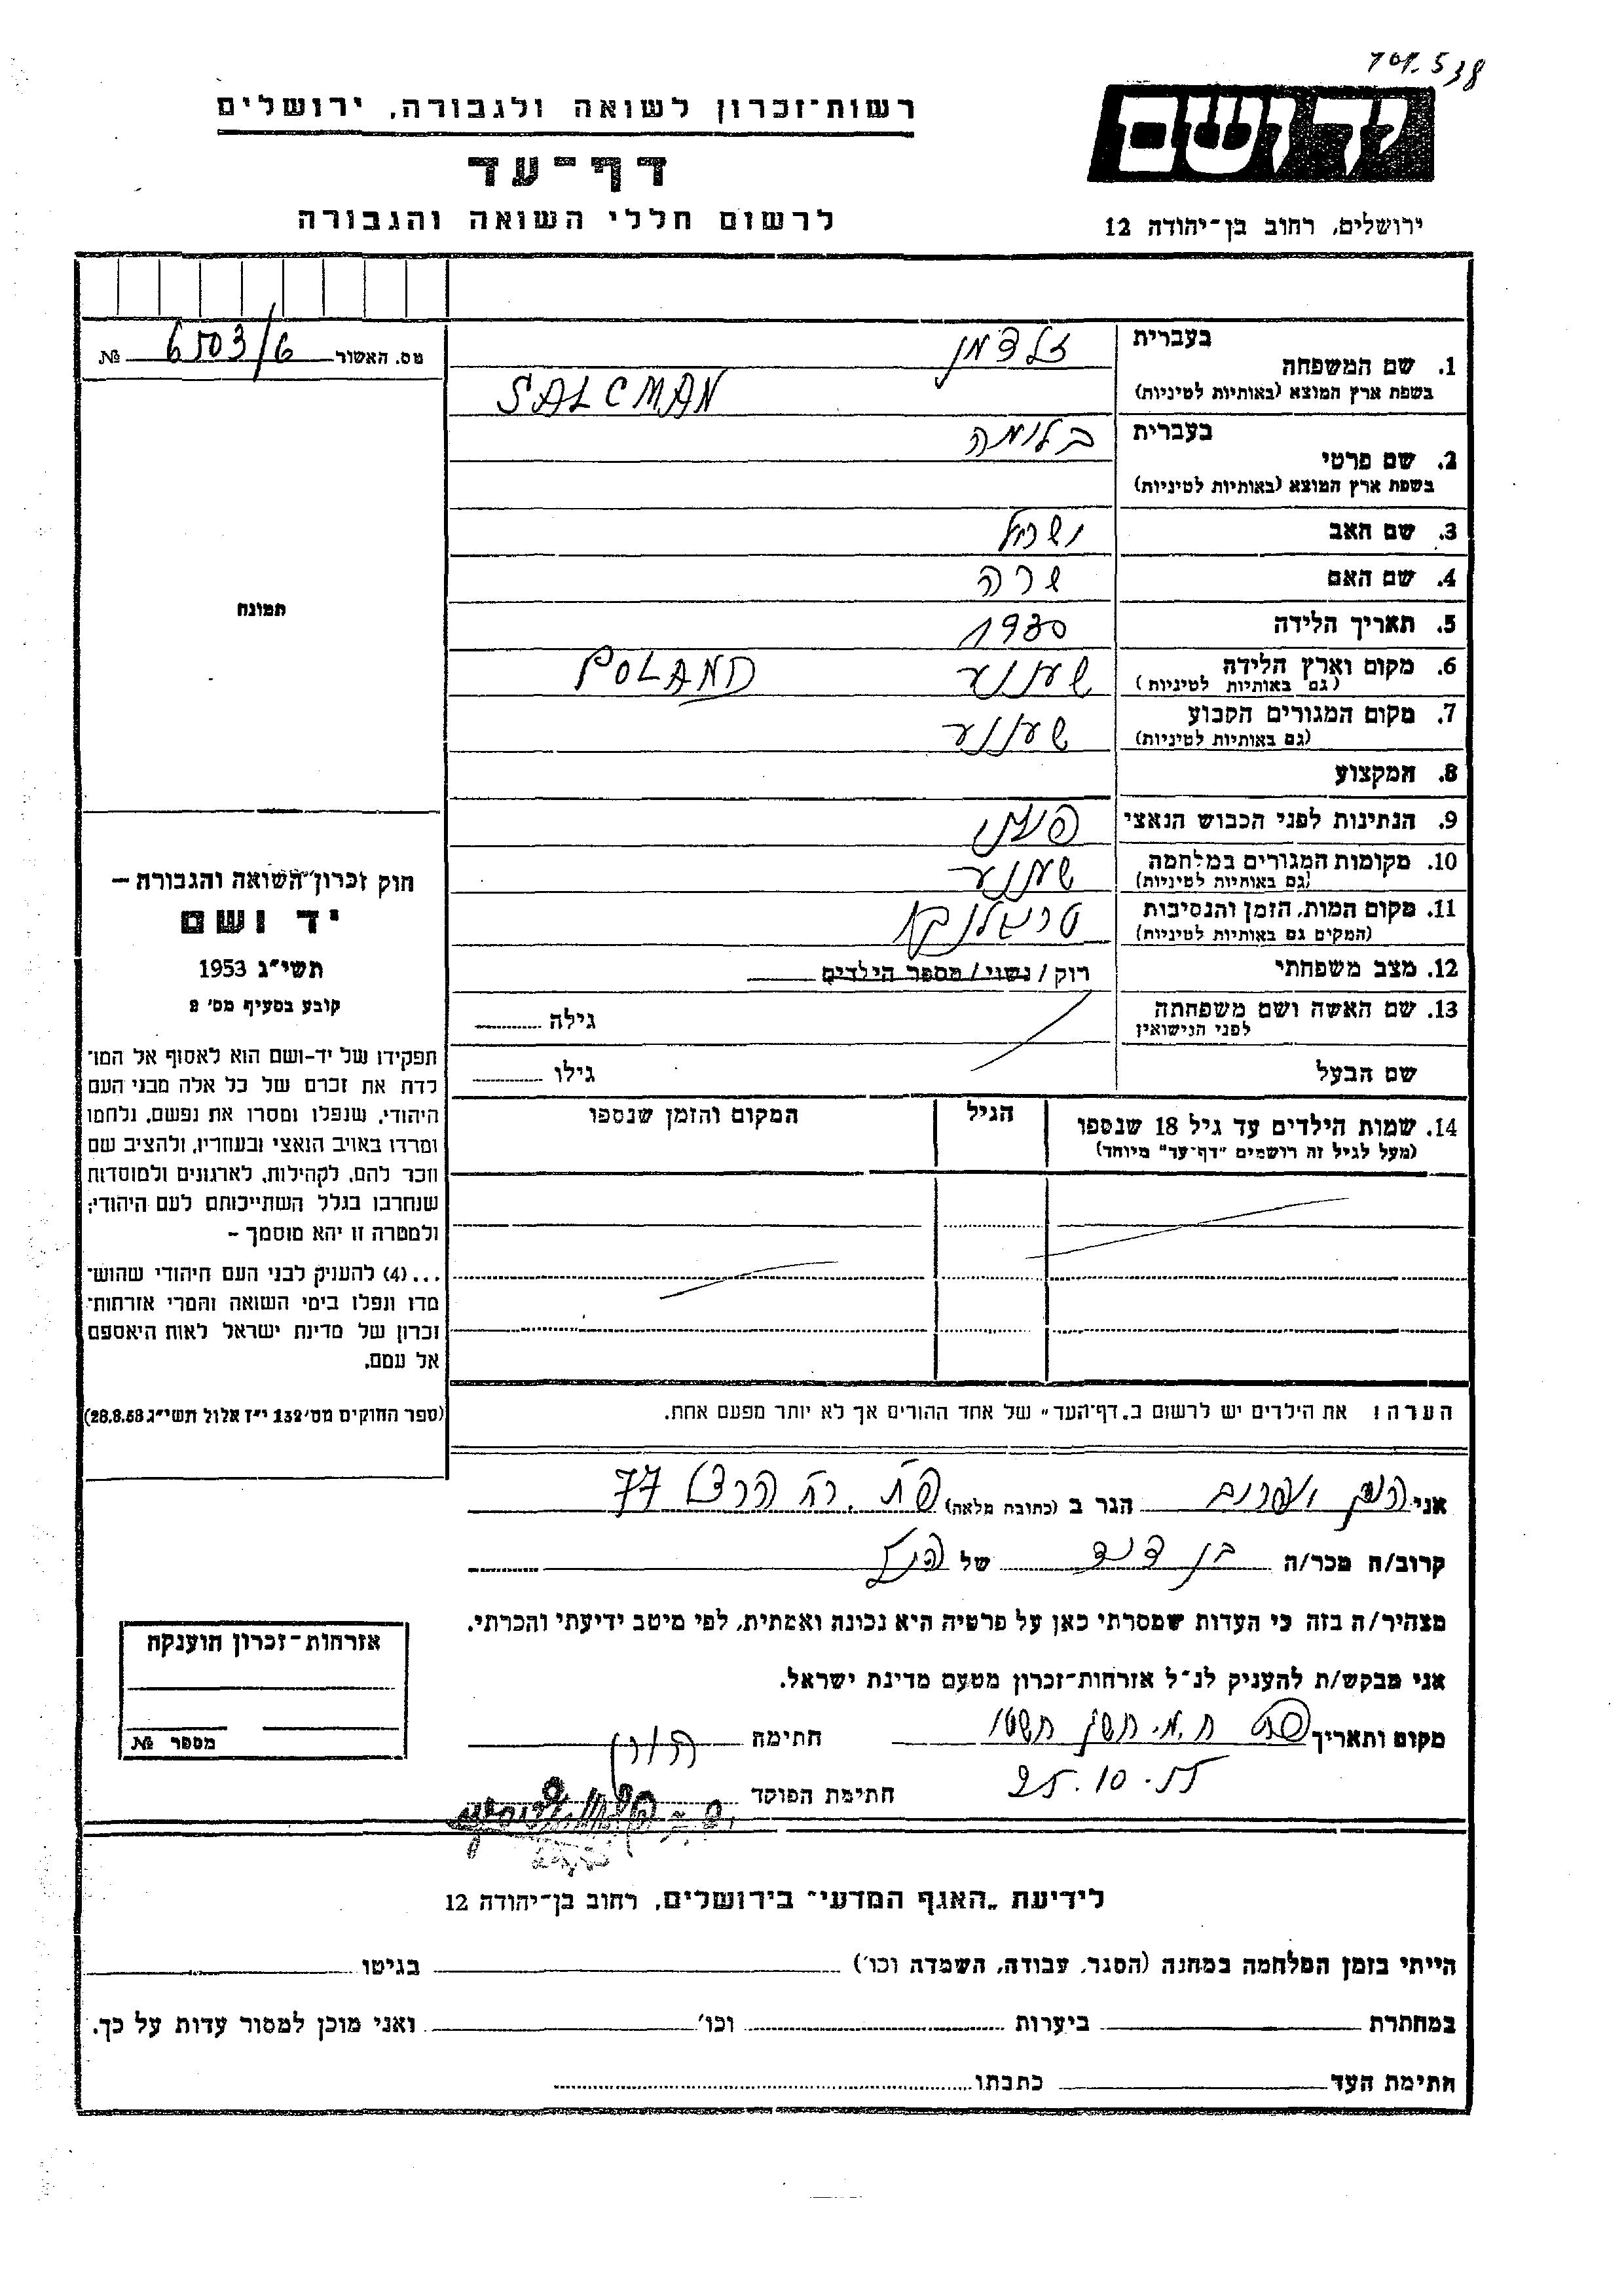 701.538
רשות־זכרון לשואה ולגבורה, ירושלים
דף־עד
לרשום חללי השואה והגבורה
יד ושם
ירושלים, רחוב בן־יהודה 12
מס. האשור 6503/6 №
תמונה
חוק זכרון השואה והגבורה –
יד ושם
תשי״ג 1953
קובע בסעיף מס׳ 2
תפקידו של יד-ושם הוא לאסוף אל המו־
לדת את זכרם של כל אלה מבני העם
היהודי, שנפלו ומסרו את נפשם, נלחמו
ומרדו באויב הנאצי ובעוזריו, ולהציב שם
וזכר להם, לקהילות, לארגונים ולמוסדות
שנחרבו בגלל השתייכותם לעם היהודי;
ולמטרה זו יהא מוסמך –
...(4) להעניק לבני העם היהודי שהוש־
מדו ונפלו בימי השואה והמרי אזרחות־
זכרון של מדינת ישראל לאות היאספם
אל עמם.
(ספר החוקים מס׳ 132 י״ז אלול תשי״ג 28.8.53)
בעברית זלצמן
1. שם המשפחה
בשפת ארץ המוצא (באותיות לטיניות) SALCMAN
בעברית בלומה
2. שם פרטי
בשפת ארץ המוצא (באותיות לטיניות)
3. שם האב ישראל
4. שם האם שרה
5. תאריך הלידה 1930
6. מקום וארץ הלידה POLAND
(גם באותיות לטיניות)
7. מקום המגורים הקבוע
(גם באותיות לטיניות)
8. המקצוע
9. הנתינות לפני הכבוש הנאצי
10. מקומות המגורים במלחמה
(גם באותיות לטיניות)
11. מקום המות, הזמן והנסיבות טרבלינקה
(המקום גם באותיות לטיניות)
12. מצב משפחתי רוק / נשוי / מספר הילדים
13. שם האשה ושם משפחתה גילה
לפני הנישואין
שם הבעל גילו
14. שמות הילדים עד גיל 18 שנספו הגיל המקום והזמן שנספו
(מעל לגיל זה רושמים ״דף־עד״ מיוחד)
הערה: את הילדים יש לרשום ב„דף־העד״ של אחד ההורים אך לא יותר מפעם אחת.
אני אפרים הגר ב (כתובת מלאה) פת. רח 77
קרוב/ה מכר/ה בן דוד של הנ״ל
מצהיר/ה בזה כי העדות שמסרתי כאן על פרטיה היא נכונה ואמתית, לפי מיטב ידיעתי והכרתי.
אני מבקש/ת להעניק לנ״ל אזרחות־זכרון מטעם מדינת ישראל.
מקום ותאריך תשט״ו חתימה
25.10.55 חתימת הפוקד
אזרחות־זכרון הוענקה
מספר №
לידיעת „האגף המדעי״ בירושלים, רחוב בן־יהודה 12
הייתי בזמן המלחמה במחנה (הסגר, עבודה, השמדה וכו׳) בגיטו
במחתרת ביערות וכו׳ ואני מוכן למסור עדות על כך.
חתימת העד כתבתו